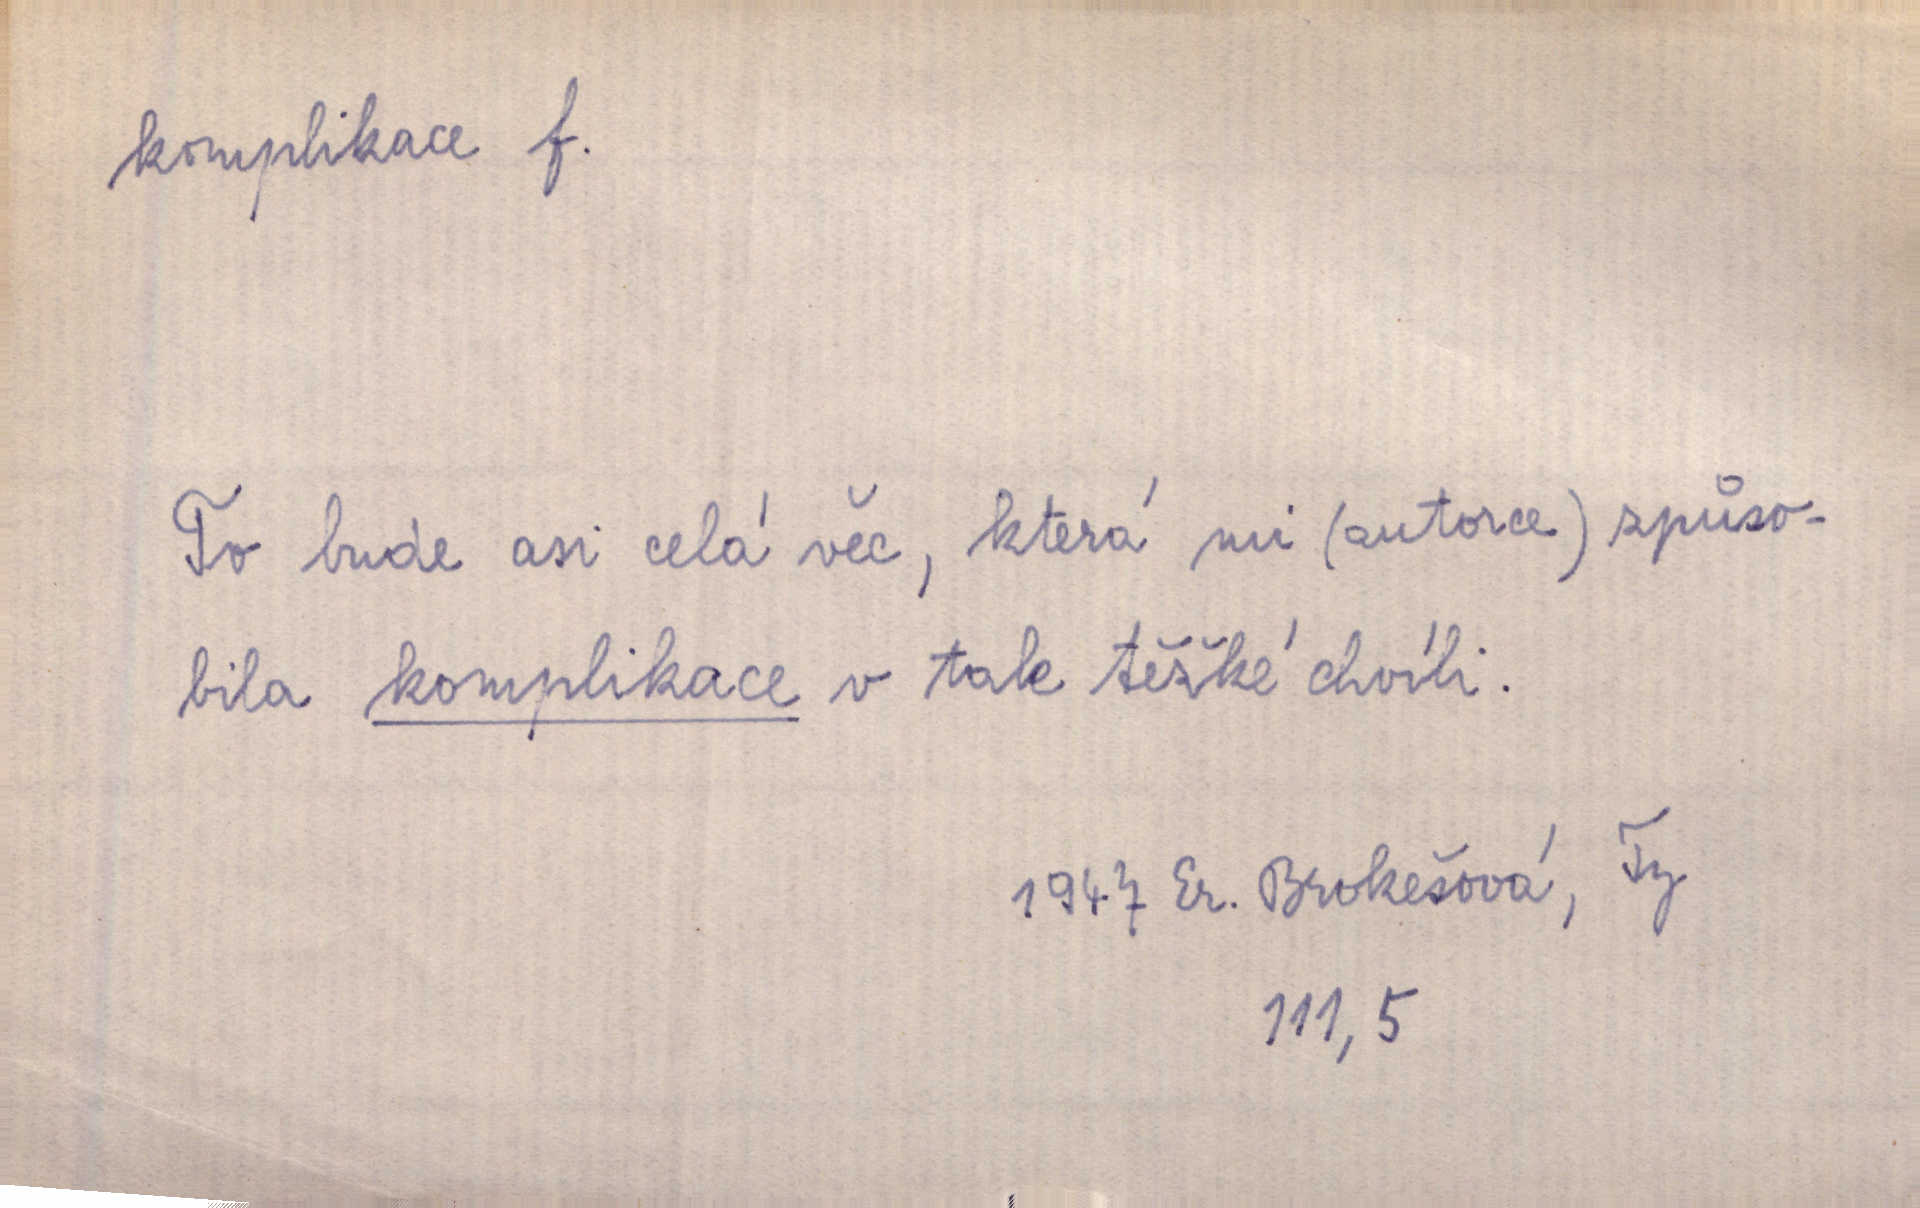 komplikace f.
To bude asi celá věc, která mi (autorce) způso-
bila komplikace v tak těžké chvíli.
1947 Er. Brokešová, Ty
111,5